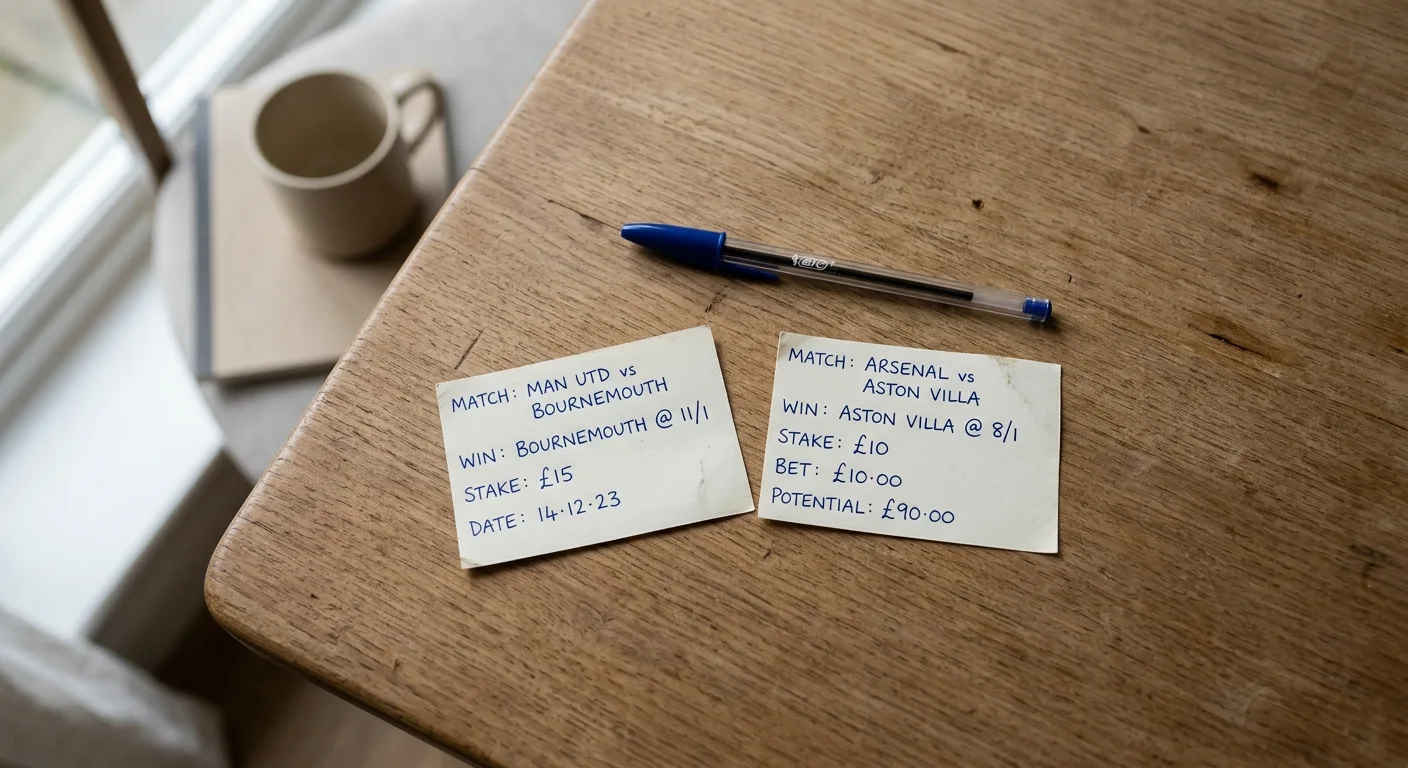 MATCH: MAN UTD vs
BOURNEMOUTH
WIN: BOURNEMOUTH @ 11/1
STAKE: £15
DATE: 14·12·23
MATCH: ARSENAL vs
ASTON VILLA
WIN: ASTON VILLA @ 8/1
STAKE: £10
BET: £10·00
POTENTIAL: £90·00